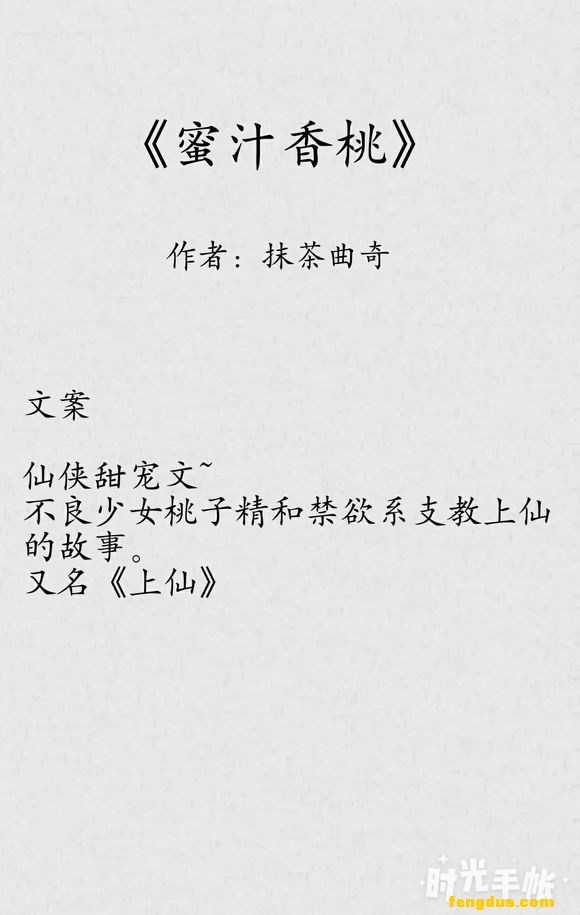 《蜜汁香桃》
作者：抹茶曲奇
文案
仙侠甜宠文~
不良少女桃子精和禁欲系支教上仙
的故事。
又名《上仙》
时光手帐
fengdus.com